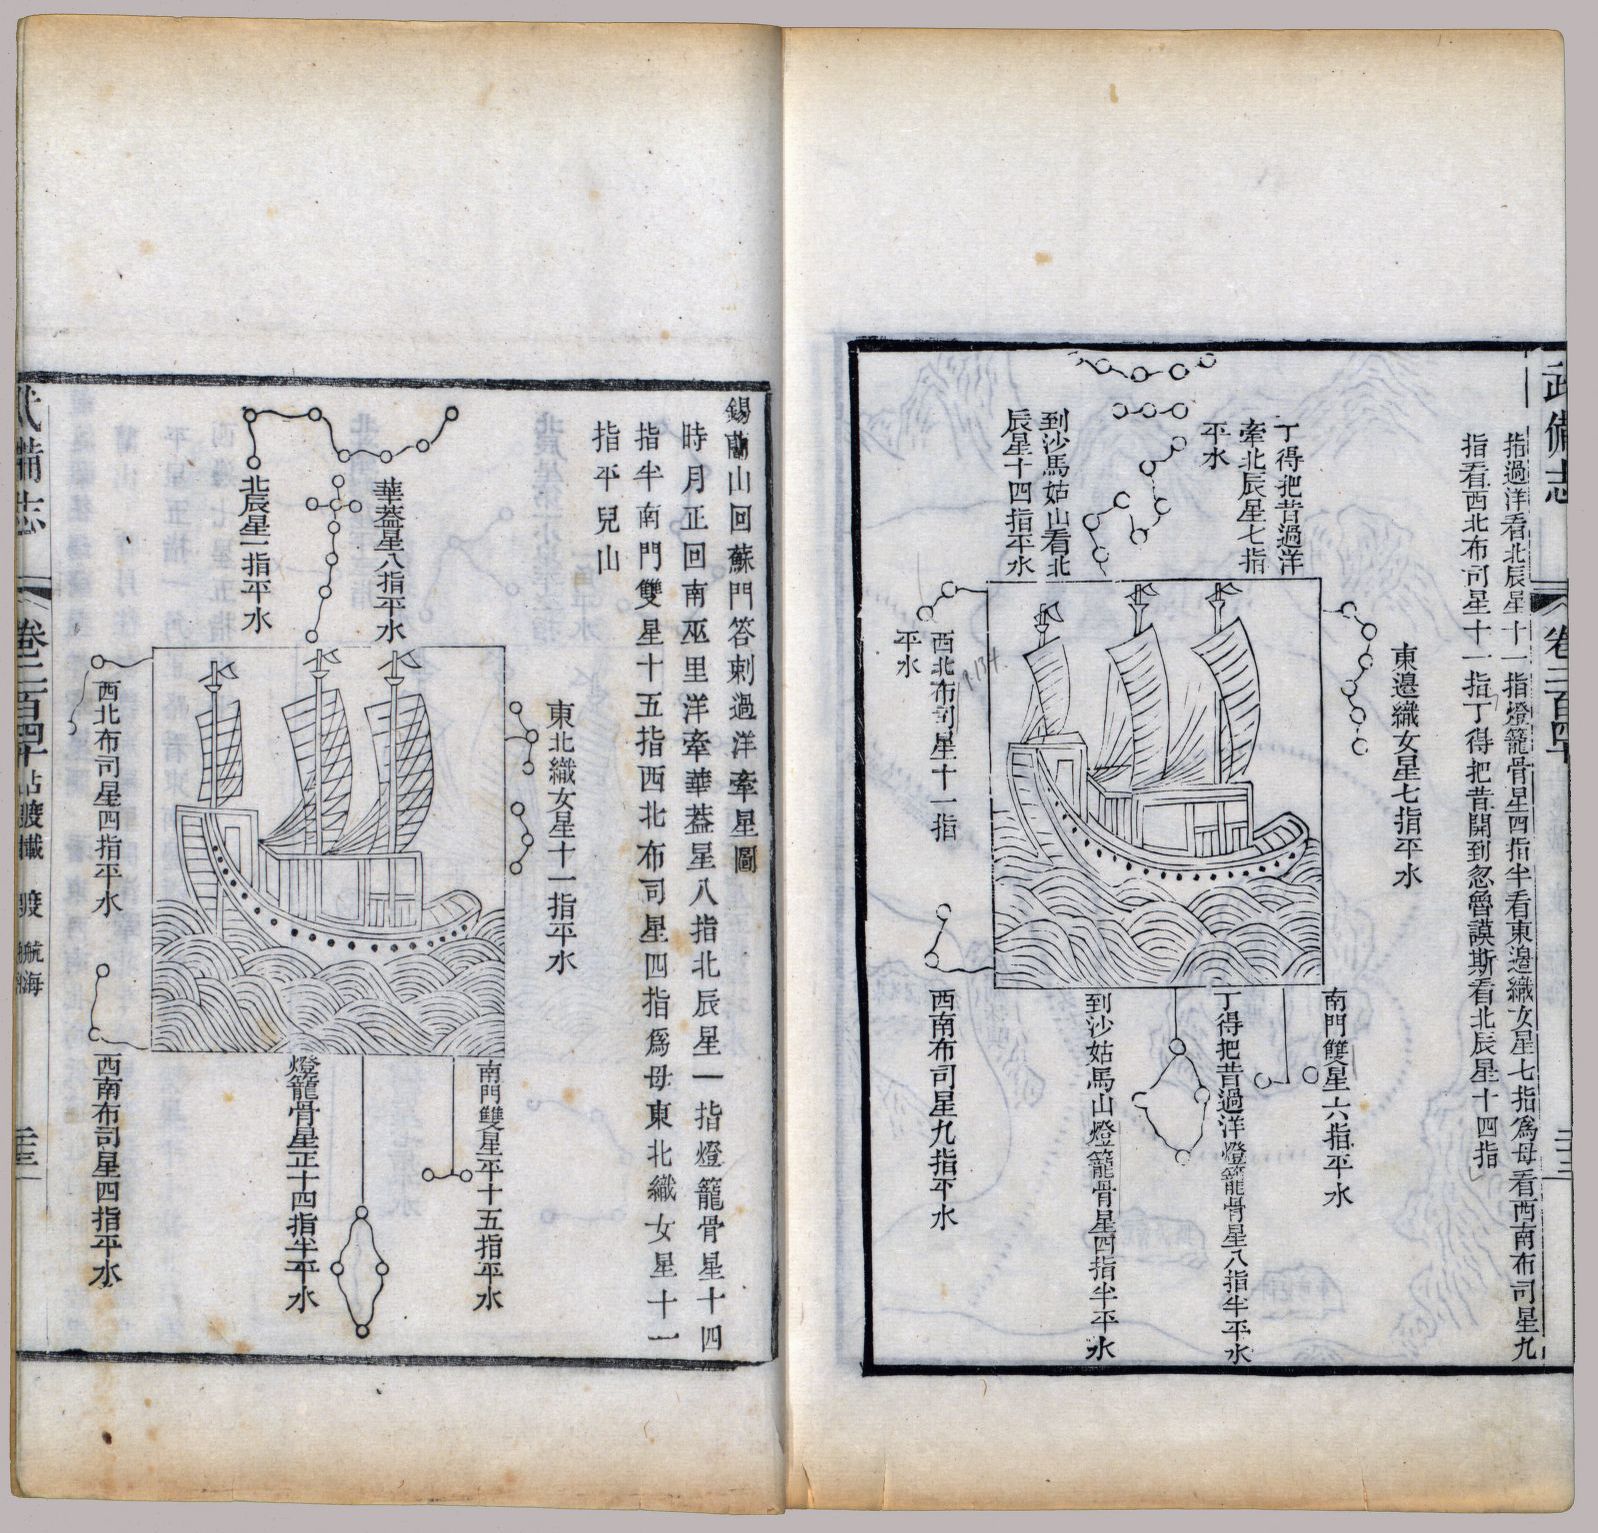 武備志
卷二百四十
二十三
指過洋看北辰星十一指燈籠骨星四指半看東邊織女星七指為母看西南布司星九
指看西北布司星十一指丁得把昔開到忽魯謨斯看北辰星十四指
丁得把昔過洋
牽北辰星七指
平水
到沙馬姑山看北
辰星十四指平水
東邊織女星七指平水
西北布司星十一指
平水
南門雙星六指平水
丁得把昔過洋燈籠骨星八指半平水
到沙姑馬山燈籠骨星四指半平水
西南布司星九指平水
錫蘭山回蘇門答剌過洋牽星圖
時月正回南巫里洋牽華蓋星八指北辰星一指燈籠骨星十四
指半南門雙星十五指西北布司星四指為母東北織女星十一
指平兒山
華蓋星八指平水
北辰星一指平水
東北織女星十一指平水
西北布司星四指平水
南門雙星平十五指平水
燈籠骨星正十四指半平水
西南布司星四指平水
武備志
卷二百四十
航海